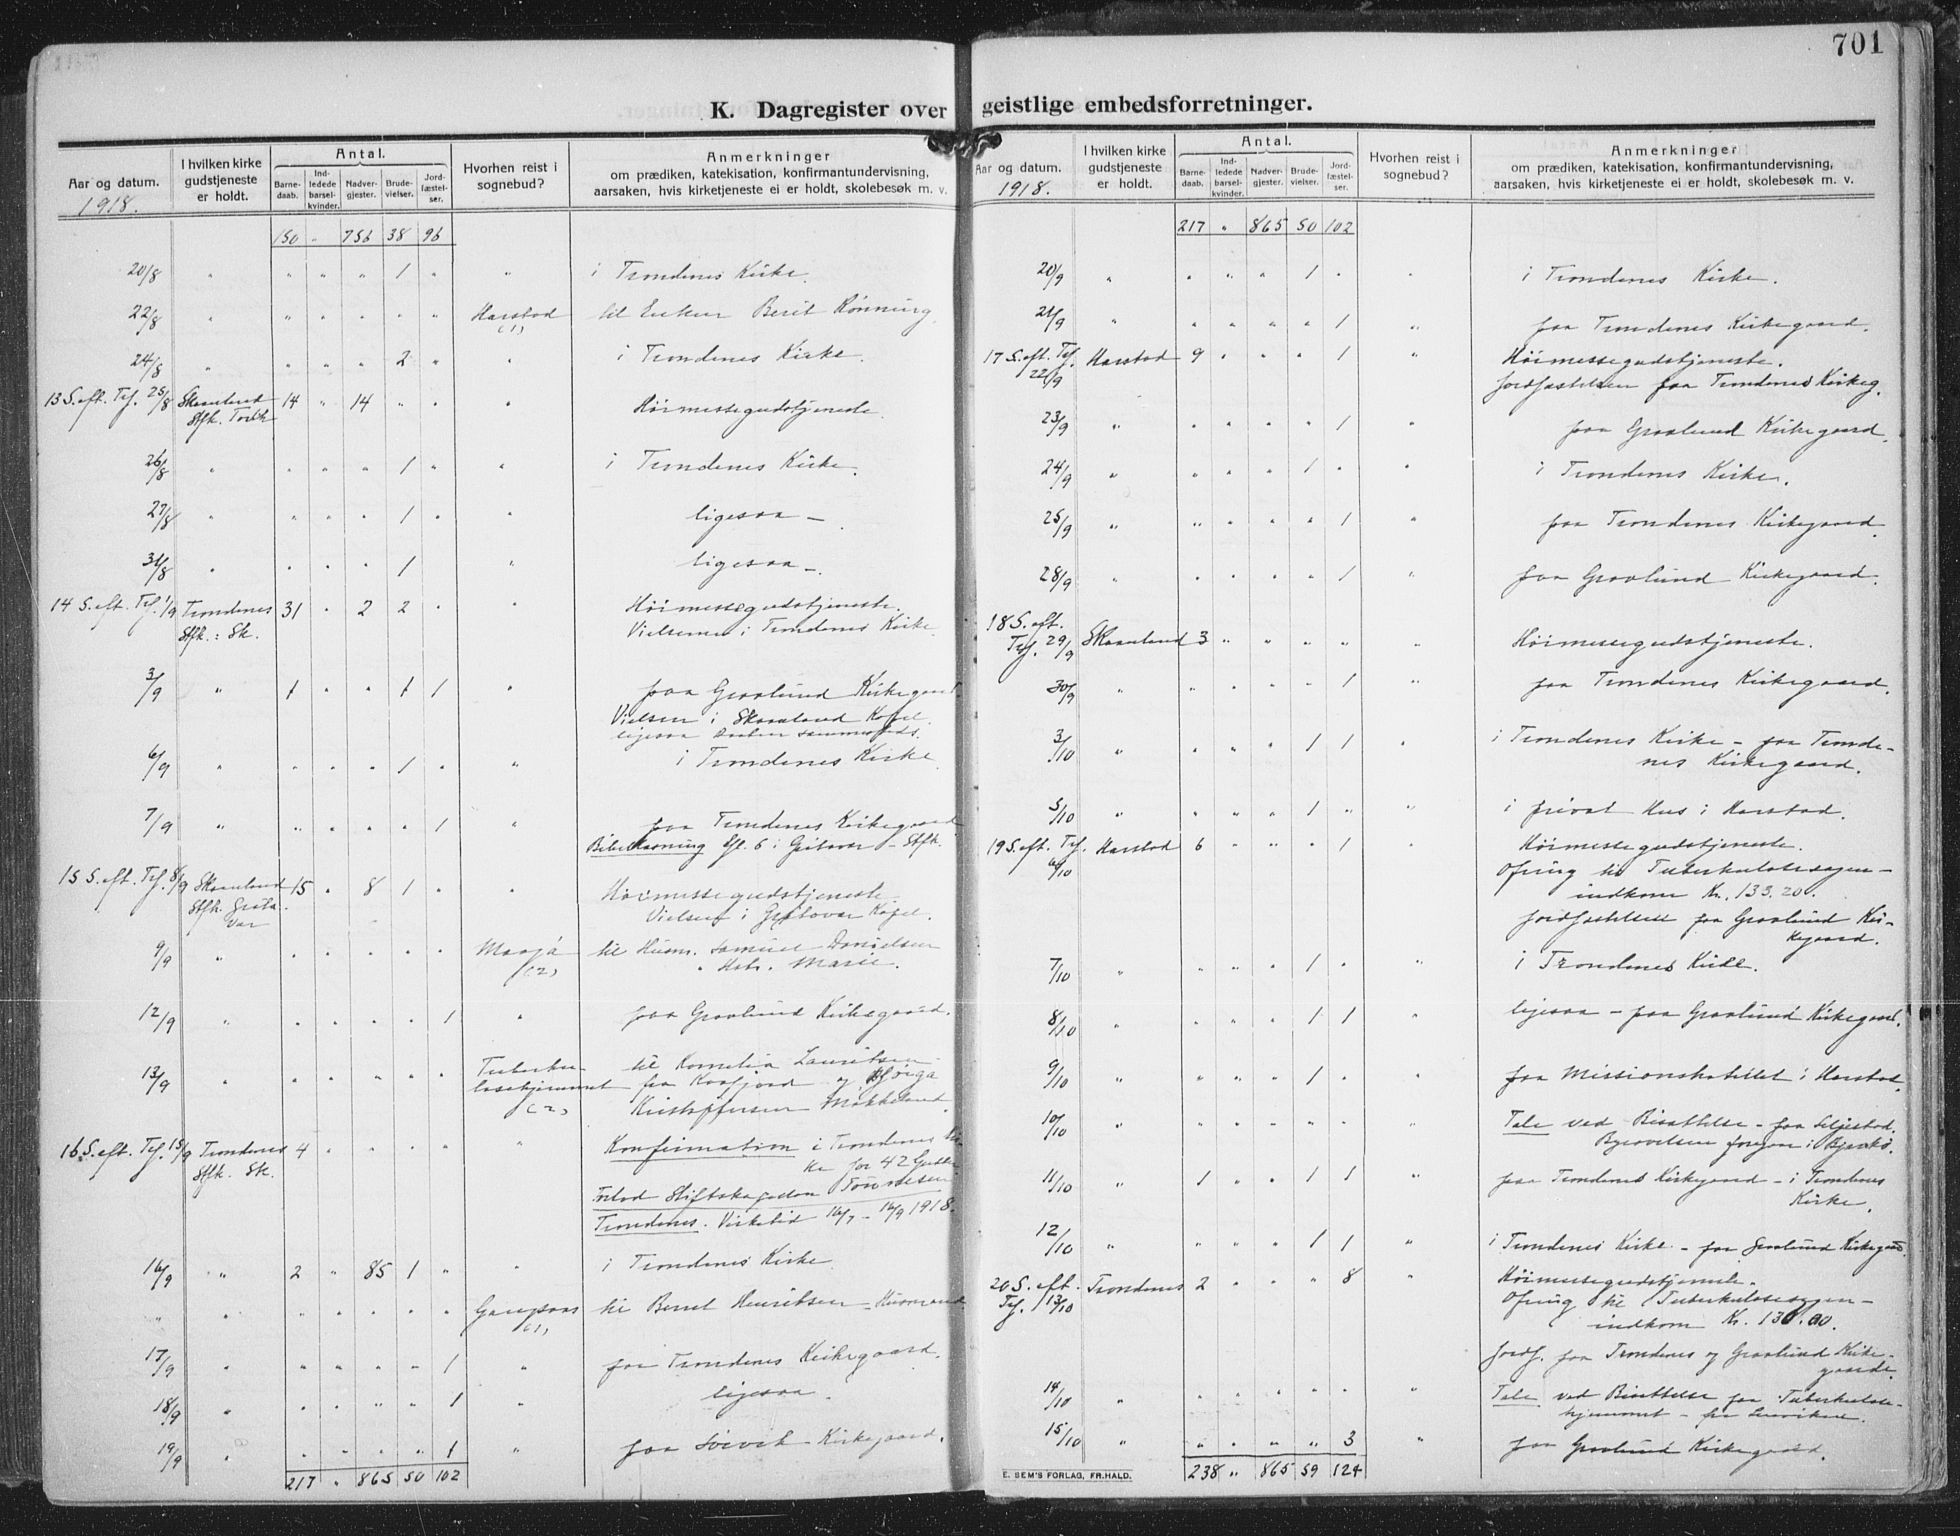 701
K. Dagregister over geistlige embedsforretninger.
Aar og datum. 1918.
I hvilken kirke gudstjeneste er holdt.
Antal.
Barne-daab. Ind-ledede barsel-kvinder. Nadver-gjester. Brude-vielser. Jord-fæstel-ser.
Hvorhen reist i sognebud?
Anmerkninger
om prædiken, katekisation, konfirmantundervisning,
aarsaken, hvis kirketjeneste ei er holdt, skolebesøk m. v.
150 " 756 38 96
20/8 " " " " 1 " " i Trondenes Kirke.
22/8 " " " " " " Harstad (1) til Enken Berit Rønning.
24/8 " " " " 2 " " i Trondenes Kirke.
13 S. eft. Tref. 25/8 Skaanland 14 " 14 " " " Høimessegudstjeneste.
Stfk.
26/8 " " " " 1 " " i Trondenes Kirke.
27/8 " " " " 1 " " ligesaa –.
31/8 " " " " 1 " " ligesaa –.
14 S. eft. Tref. 1/9 Trondenes 31 " 2 2 " " Høimessegudstjeneste.
Stfk.: Sk. Vielserne i Trondenes Kirke.
3/9 " 1 " " 1 1 " paa Gravlund Kirkegaard
Vielsen i Skaanland Kapel.
ligesaa daaben sammesteds.
6/9 " " " " 1 " " i Trondenes Kirke
7/9 " " " " " 1 " paa Trondenes Kirkegaard
Bibellæsning Ef. 6 i Gritavær – Stfk.
15 S. eft. Tref. 8/9 Skaanland 15 " 8 1 " " Høimessegudstjeneste.
Stfk. Grita-
vær Vielsen i Gritavær Kapel.
9/9 " " " " " " (2) til Husm. Samuel Danielsen
" Hstr. Marie.
12/9 " " " " " 1 " paa Gravlund Kirkegaard.
13/9 " " " " " " Tuberku-
losehjemmet (2)
til Kornelia Lauritsen
fra Kaafjord og
Kristoffersen Mokkeland.
16 S. eft. Tref. 15/9 Trondenes 4 " " " " " Konfirmation i Trondenes Kir-
Stfk. Sk. ke for 42 Gutter
ved Stiftskapellan
Trondenes. Virketid 16/7 – 16/9 1918.
16/9 " 2 " 85 1 " " i Trondenes Kirke.
" " " " " " " Gangsaas (1) til Berret Henriksen – Husmand
17/9 " " " " " 1 " paa Trondenes Kirkegaard.
18/9 " " " " " 1 " ligesaa.
19/9 " " " " " 1 " paa Sørvik – Kirkegaard.
217 " 865 50 102
Aar og datum. 1918.
I hvilken kirke gudstjeneste er holdt.
Antal.
Barne-daab. Ind-ledede barsel-kvinder. Nadver-gjester. Brude-vielser. Jord-fæstel-ser.
Hvorhen reist i sognebud?
Anmerkninger
om prædiken, katekisation, konfirmantundervisning,
aarsaken, hvis kirketjeneste ei er holdt, skolebesøk m. v.
217 " 865 50 102
20/9 " " " " 1 " " i Trondenes Kirke.
21/9 " " " " " 1 " paa Trondenes Kirkegaard.
17 S. eft. Tref. 22/9 Harstad 9 " " " 1 " Høimessegudstjeneste.
Jordfæstelsen paa Trondenes Kirkeg.
23/9 " " " " " 1 " paa Gravlund Kirkegaard.
24/9 " " " " 1 " " i Trondenes Kirke.
25/9 " " " " " 1 " paa Trondenes Kirkegaard.
28/9 " " " " " 1 " paa Gravlund Kirkegaard.
18 S. eft.
Tref. 29/9 Skaanland 3 " " " " " Høimessegudstjeneste.
30/9 " " " " " 1 " paa Trondenes Kirkegaard.
3/10 " " " " 1 1 " i Trondenes Kirke – paa Tronde-
nes Kirkegaard.
5/10 " " " " 1 " " i privat Hus i Harstad.
19 S. eft. Tref. 6/10 Harstad 6 " " " 1 " Høimessegudstjeneste.
Ofring til Tuberkulosesagen –
indkom Kr. 133.20.
Jordfæstelsen paa Gravlund Kir-
kegaard.
7/10 " " " " 1 " " i Trondenes Kirke.
8/10 " " " " 1 1 " ligesaa – paa Gravlund Kirkegaard.
9/10 " " " " 1 " " paa Missionshotellet i Harstad.
10/10 " " " " " " " Tale ved Bisættelse – paa Seljestad.
foregaar i Bjarkø.
11/10 " 1 " " 1 1 " paa Trondenes Kirkegaard – i Trondenes
Kirke.
12/10 " " " " 1 1 " i Trondenes Kirke – paa Gravlund Kirkegaard.
20 S. eft.
Tref. 13/10 Trondenes 2 " " " 8 " Høimessegudstjeneste.
Ofring til Tuberkulosesagen –
indkom Kr. 130.00.
Jordf. paa Trondenes og Gravlund Kirke-
gaarde.
14/10 " " " " " " " Tale ved Bisættelse paa Tuberkulose-
hjemmet –
15/10 " " " " " 3 " paa Gravlund Kirkegaard.
238 " 865 59 124
E. SEM'S FORLAG, FR.HALD.